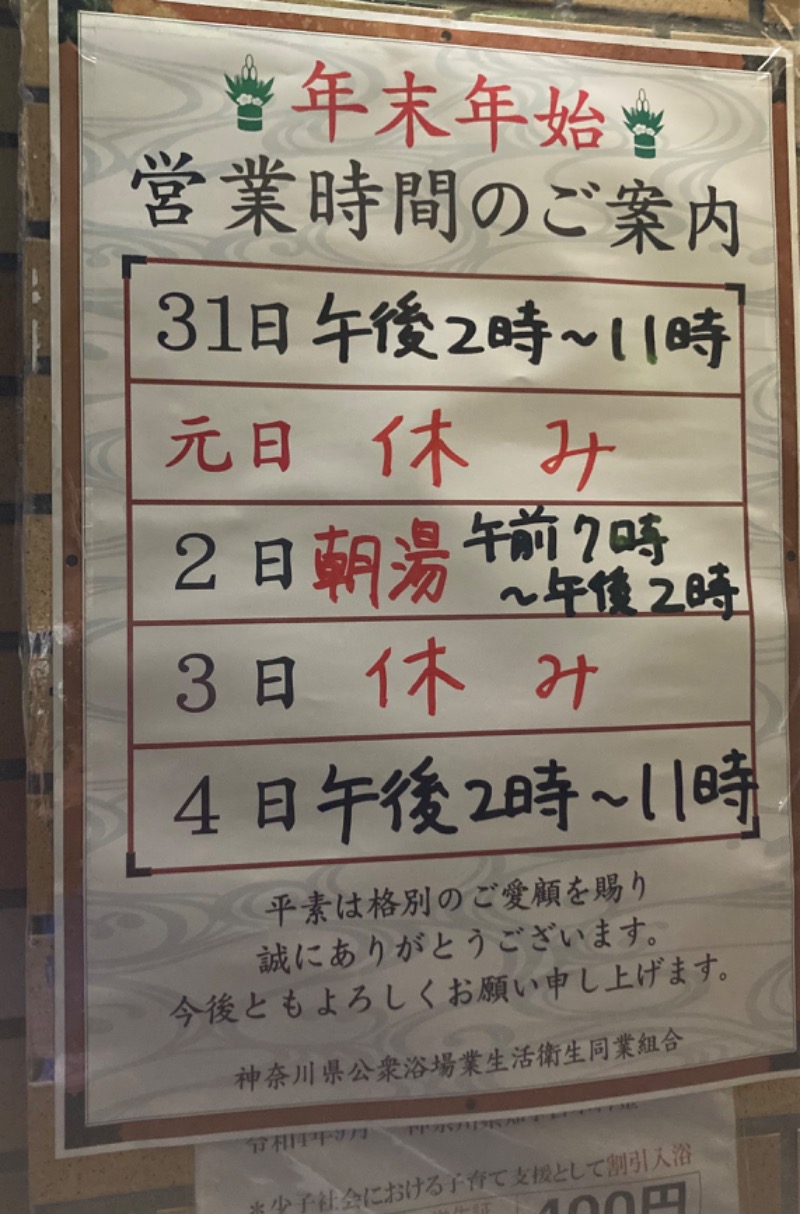 年末年始
営業時間のご案内
31日 午後2時～11時
元日 休み
2日 朝湯 午前7時
～午後2時
3日 休み
4日 午後2時～11時
平素は格別のご愛顧を賜り
誠にありがとうございます。
今後ともよろしくお願い申し上げます。
神奈川県公衆浴場業生活衛生同業組合
令和4年9月
＊少子社会における子育て支援として割引入浴
400円